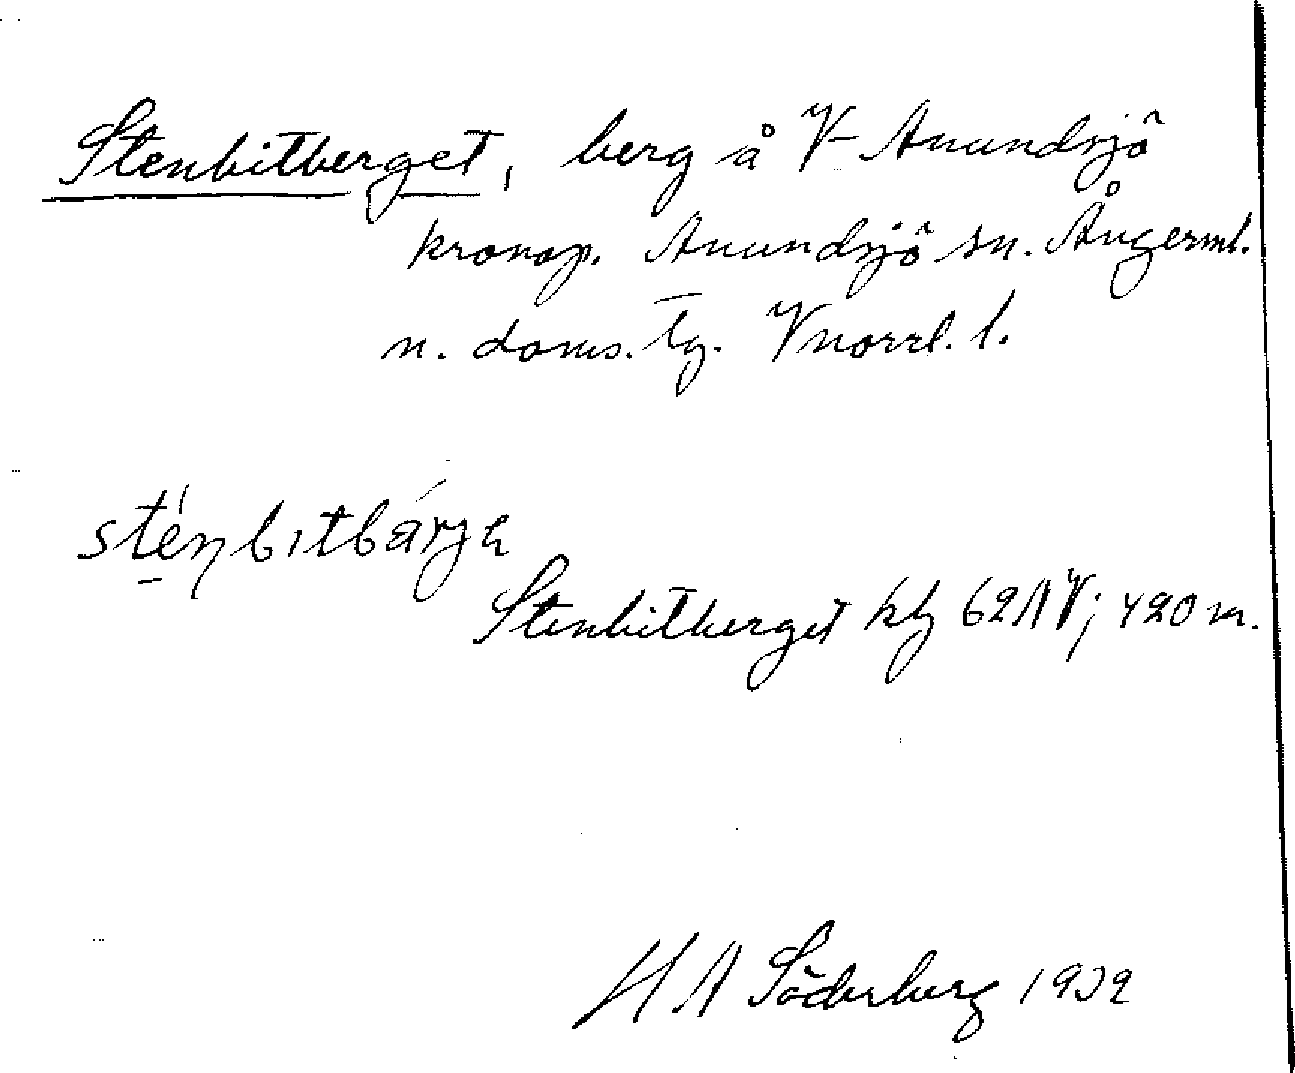 Stenbitberget, berg å V Anundsjö
kronop. Anundsjö sn. Ångerml.
n. doms. tg. Vnorrl. l.
sténbitbárjə
Stenbitberget kbl 62NV; 420 m.
H A Söderberg 1932